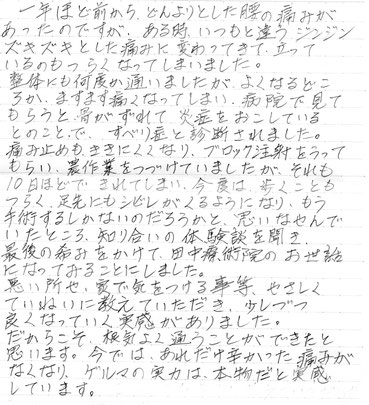 一年ほど前から、どんよりとした腰の痛みが
あったのですが、ある時、いつもと違う ジンジン
ズキズキとした痛みに変わってきて、立って
いるのもつらくなってしまいました。
整体にも何度か通いましたが、よくなるどこ
ろか、ますます痛くなってしまい、病院で見て
もらうと、骨がずれて、炎症をおこしている
とのことで、すべり症と診断されました。
痛み止めもききにくくなり、ブロック注射をうって
もらい、農作業をつづけていましたが、それも
10日ほどできれてしまい、今度は、歩くことも
つらく、足先にもシビレがくるようになり、もう
手術するしかないのだろうかと、思いなやんで
いたところ、知り合いの体験談を聞き、
最後の希みをかけて、田中療術院のお世話
になってみることにしました。
悪い所や、家で気をつける事等、やさしく
ていねいに教えていただき、少しづつ
良くなっていく実感がありました。
だからこそ、根気よく通うことができたと
思います。今では、あれだけ辛かった痛みが
なくなり、ゲルマの実力は、本物だと実感
しています。